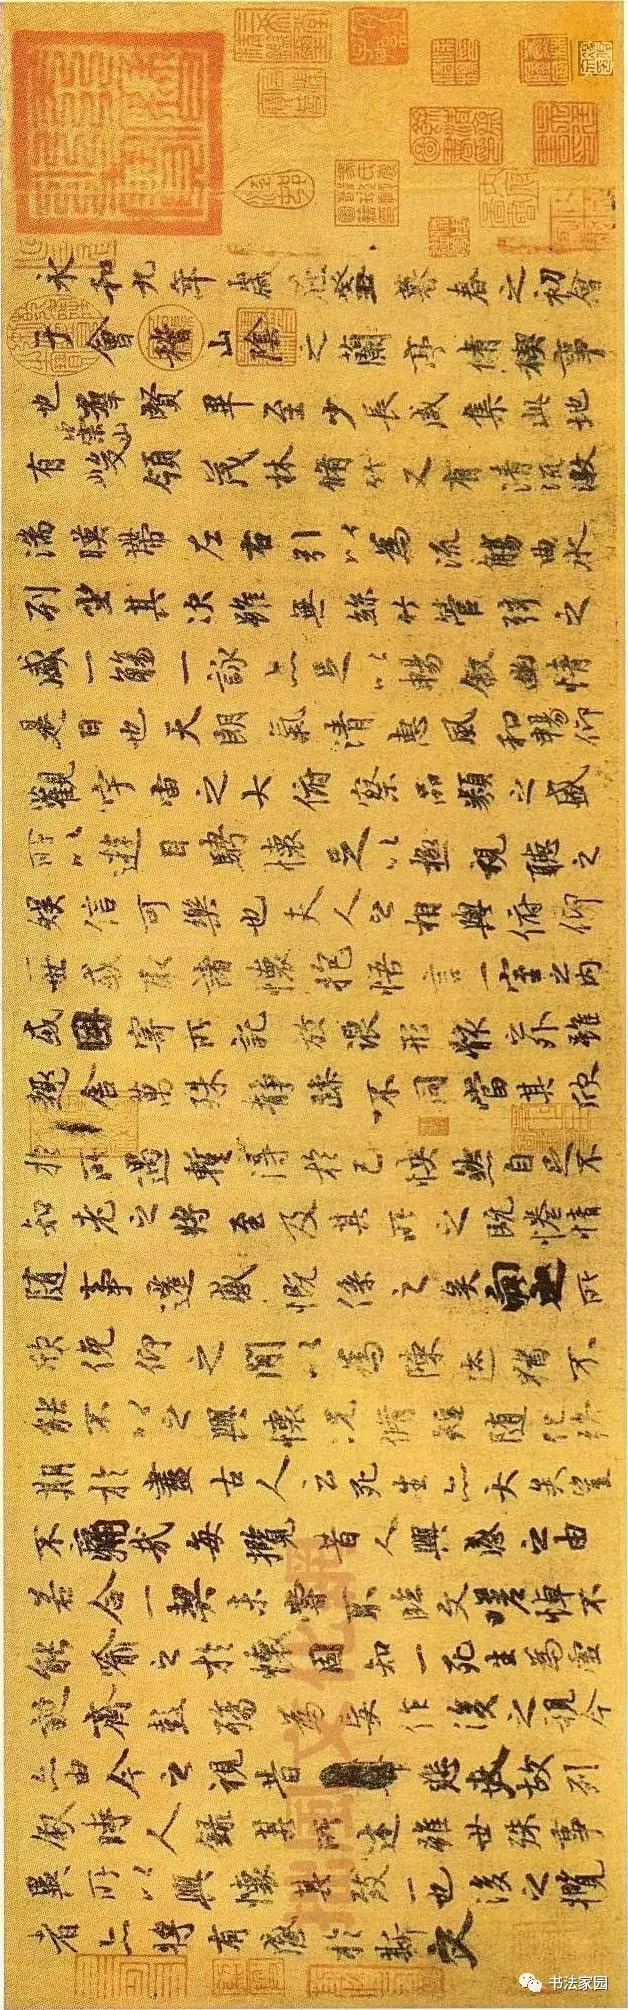 永和九年歲在癸丑暮春之初會
于會稽山陰之蘭亭脩稧事
也羣賢畢至少長咸集此地
有崇山峻領茂林脩竹又有清流激
湍暎帶左右引以為流觴曲水
列坐其次雖無絲竹管弦之
盛一觴一詠亦足以暢敘幽情
是日也天朗氣清惠風和暢仰
觀宇宙之大俯察品類之盛
所以遊目騁懷足以極視聽之
娛信可樂也夫人之相與俯仰
一世或取諸懷抱悟言一室之內
或因寄所託放浪形骸之外雖
趣舍萬殊靜躁不同當其欣
於所遇蹔得於己怏然自足不
知老之將至及其所之既惓情
隨事遷感慨係之矣向之所
欣俛仰之閒以為陳迹猶不
能不以之興懷況脩短隨化終
期於盡古人云死生亦大矣豈
不痛哉每攬昔人興感之由
若合一契未嘗不臨文嗟悼不
能喻之於懷固知一死生為虛
誕齊彭殤為妄作後之視今
亦由今之視昔悲夫故列
敘時人錄其所述雖世殊事
異所以興懷其致一也後之攬
者亦將有感於斯文
拙风文化网
书法家园